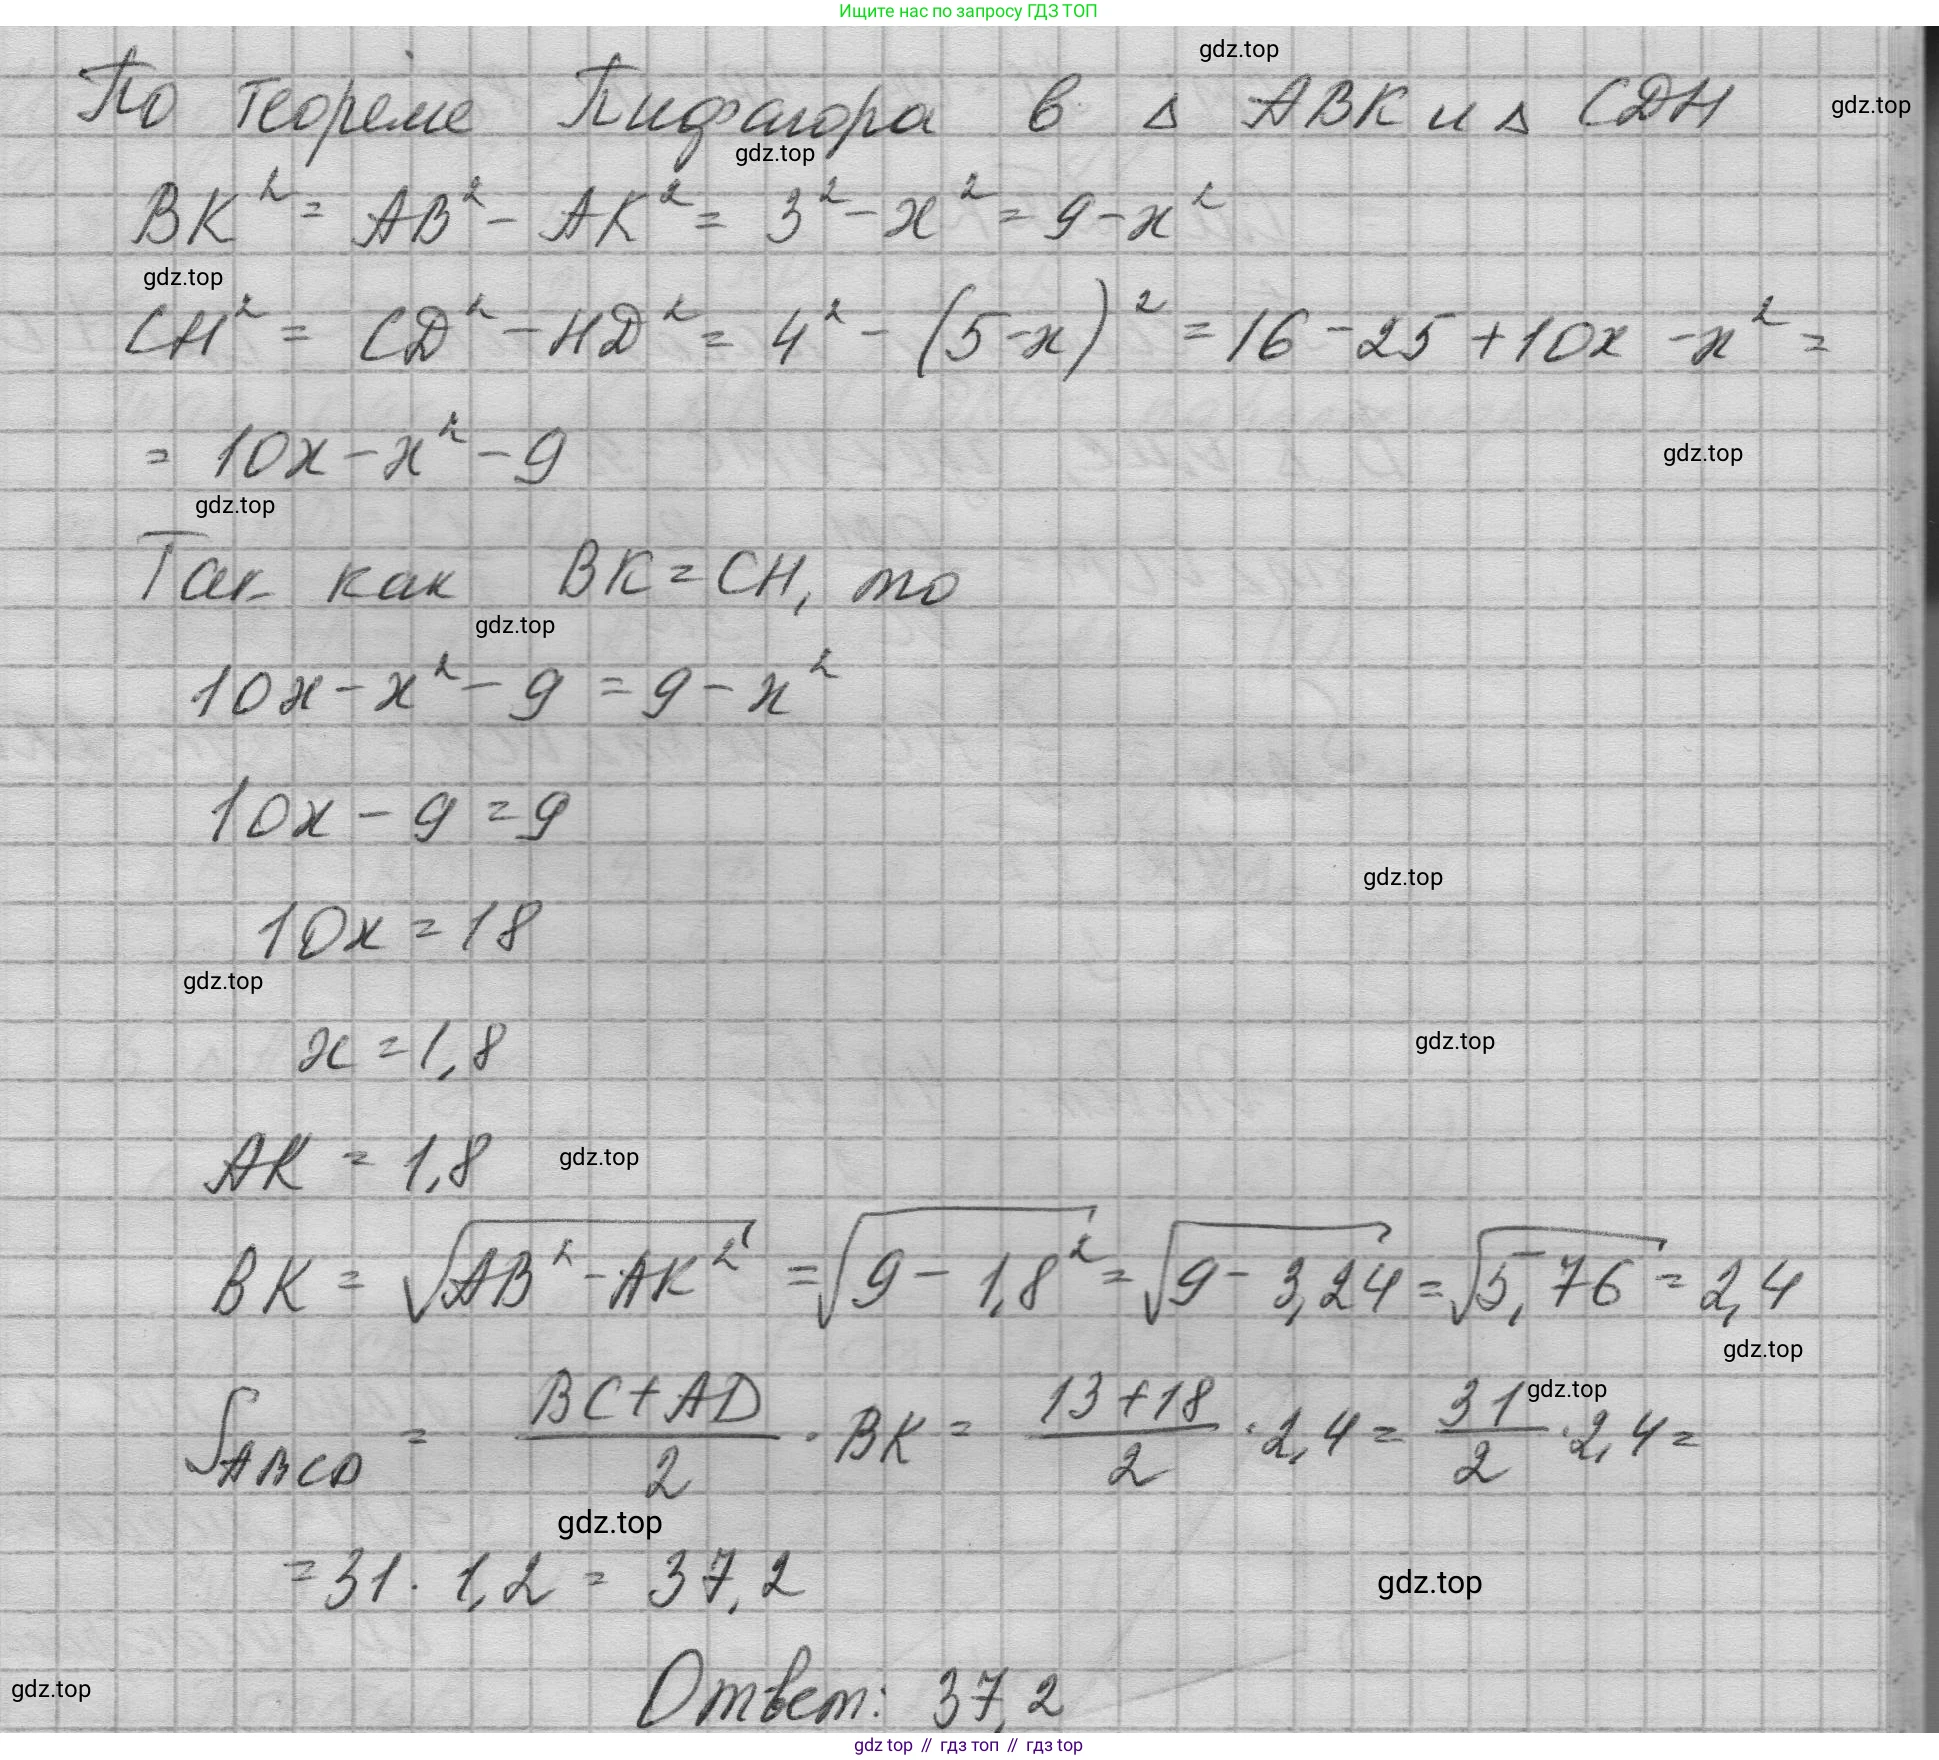 Ищите нас по запросу ГДЗ ТОП
gdz.top
По теореме Пифагора в Δ ABK и Δ CDH
gdz.top
gdz.top
BK² = AB² - AK² = 3² - x² = 9 - x²
gdz.top
CH² = CD² - HD² = 4² - (5-x)² = 16 - 25 + 10x - x² =
= 10x - x² - 9
gdz.top
gdz.top
Так как BK = CH, то
gdz.top
10x - x² - 9 = 9 - x²
10x - 9 = 9
gdz.top
10x = 18
gdz.top
x = 1,8
gdz.top
AK = 1,8
gdz.top
BK = √(AB² - AK²) = √(9 - 1,8²) = √(9 - 3,24) = √5,76 = 2,4
gdz.top
S_ABCD = (BC + AD)/2 · BK = (13 + 18)/2 · 2,4 = 31/2 · 2,4 =
gdz.top
gdz.top
= 31 · 1,2 = 37,2
gdz.top
Ответ: 37,2
gdz.top
gdz top // гдз топ // гдз top